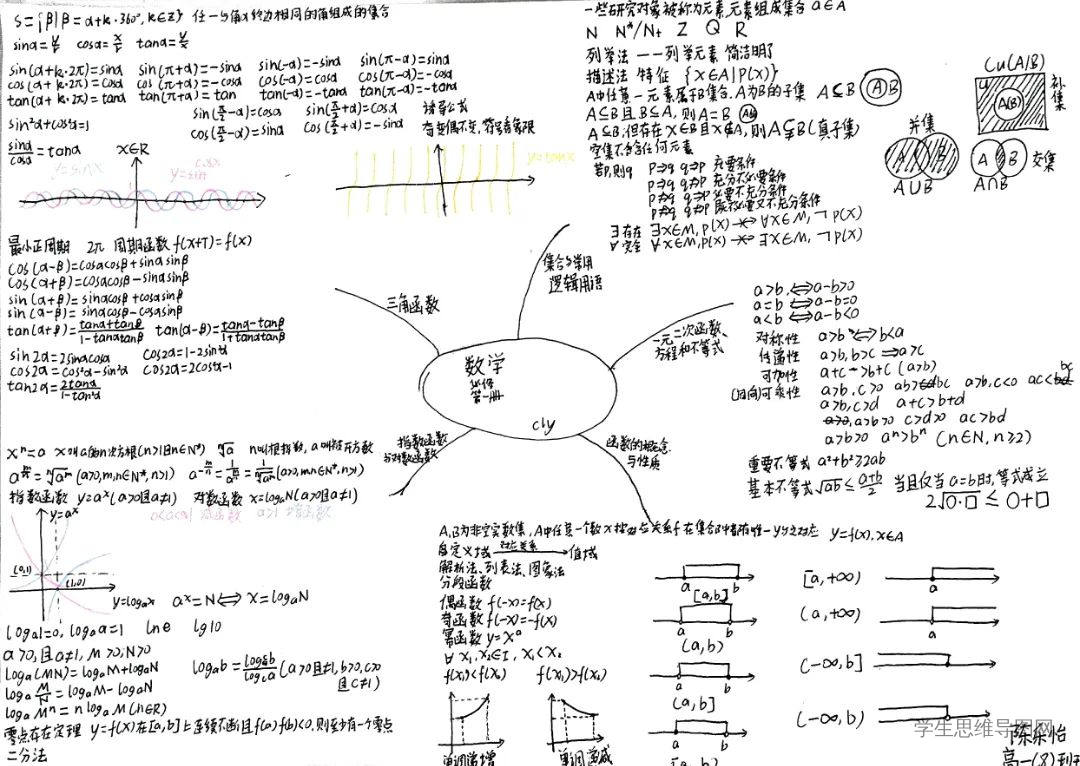 S={β|β=α+k·360°,k∈Z} 任一与角α终边相同的角组成的集合
sinα=y/r cosα=x/r tanα=y/x
sin(α+k·2π)=sinα sin(π+α)=-sinα sin(-α)=-sinα sin(π-α)=sinα
cos(α+k·2π)=cosα cos(π+α)=-cosα cos(-α)=cosα cos(π-α)=-cosα
tan(α+k·2π)=tanα tan(π+α)=tanα tan(-α)=-tanα tan(π-α)=-tanα
sin(π/2-α)=cosα sin(π/2+α)=cosα 诱导公式
sin²α+cos²α=1 cos(π/2-α)=sinα cos(π/2+α)=-sinα 奇变偶不变,符号看象限
sinα/cosα=tanα x∈R
y=sinx cosx y=tanx
最小正周期 2π 周期函数 f(x+T)=f(x)
cos(α-β)=cosαcosβ+sinαsinβ
cos(α+β)=cosαcosβ-sinαsinβ
sin(α+β)=sinαcosβ+cosαsinβ
sin(α-β)=sinαcosβ-cosαsinβ
tan(α+β)=tanα+tanβ/1-tanαtanβ tan(α-β)=tanα-tanβ/1+tanαtanβ
sin2α=2sinαcosα cos2α=1-2sin²α
cos2α=cos²α-sin²α cos2α=2cos²α-1
tan2α=2tanα/1-tan²α
三角函数
一些研究对象被称为元素,元素组成集合 a∈A
N N*/N+ Z Q R
列举法 ——列举元素 简洁明了
描述法 特征 {x∈A|P(x)}
A中任意一元素属于B集合,A为B的子集 A⊆B A B
A⊆B且B⊆A,则A=B AB
A⊆B,但存在x∈B且x∉A,则A⫋B(真子集)
空集不含任何元素
若p,则q p⇒q q⇒p 充要条件
p⇒q q⇏p 充分不必要条件
p⇏q q⇒p 必要不充分条件
p⇏q q⇏p 既不必要又不充分条件
∃存在 ∃x∈M,p(x) ∀x∈M,¬p(x)
∀ ∀x∈M,p(x) ∃x∈M,¬p(x)
Cu(A|B)
U
A|B
补集
并集
A B
A∪B
A B
交集
A∩B
集合与常用
逻辑用语
数学
必修
第一册
cly
一元二次函数、
方程和不等式
a>b,⟺a-b>0
a=b ⟺a-b=0
a<b ⟺a-b<0
对称性 a>b⟺b<a
传递性 a>b,b>c ⟹a>c
可加性 a+c>b+c (a>b)
(同向)可乘性 a>b,c>0 ac>bc a>b,c<0 ac<bc
a>b,c>d a+c>b+d
a>b>0 c>d>0 ac>bd
a>b>0 aⁿ>bⁿ (n∈N,n≥2)
重要不等式 a²+b²≥2ab
基本不等式√ab≤a+b/2 当且仅当a=b时,等式成立
2√□·□≤□+□
指数函数
与对数函数
xⁿ=a x叫a的n次方根(n>1且n∈N*) ⁿ√a n叫根指数,a叫被开方数
a^(m/n)=ⁿ√a^m(a>0,m,n∈N*,n>1) a^(-m/n)=1/a^(m/n)=1/ⁿ√a^m(a>0,m,n∈N*,n>1)
指数函数 y=a^x(a>0且a≠1) 对数函数 x=logₐN(a>0且a≠1)
y=a^x 0<a<1 减函数 a>1 增函数
(0,1)
(1,0)
y=logₐx a^x=N⟺x=logₐN
logₐ1=0,logₐa=1 lne lg10
a>0,且a≠1,M>0,N>0
logₐ(MN)=logₐM+logₐN
logₐM/N=logₐM-logₐN
logₐMⁿ=nlogₐM(n∈R)
logₐb=log_c b/log_c a(a>0且a≠1,b>0,c>0
且c≠1)
零点存在定理 y=f(x)在[a,b]上连续不断且f(a)f(b)<0,则至少有一个零点
二分法
函数的概念
与性质
A,B为非空实数集,A中任意一个数x按对应关系f在集合B中都有唯一y与之对应 y=f(x),x∈A
自定义域 对应关系 值域
解析法、列表法、图象法
分段函数
偶函数 f(-x)=f(x)
奇函数 f(-x)=-f(x)
幂函数 y=x^α
∀x₁,x₂∈I,x₁<x₂
f(x₁)<f(x₂) f(x₁)>f(x₂)
单调递增 单调递减
a b
[a,b]
a b
(a,b)
a b
(a,b]
a b
[a,b)
[a,+∞) a
(a,+∞) a
(-∞,b] b
(-∞,b) b
学生思维导图网
高一(8)班